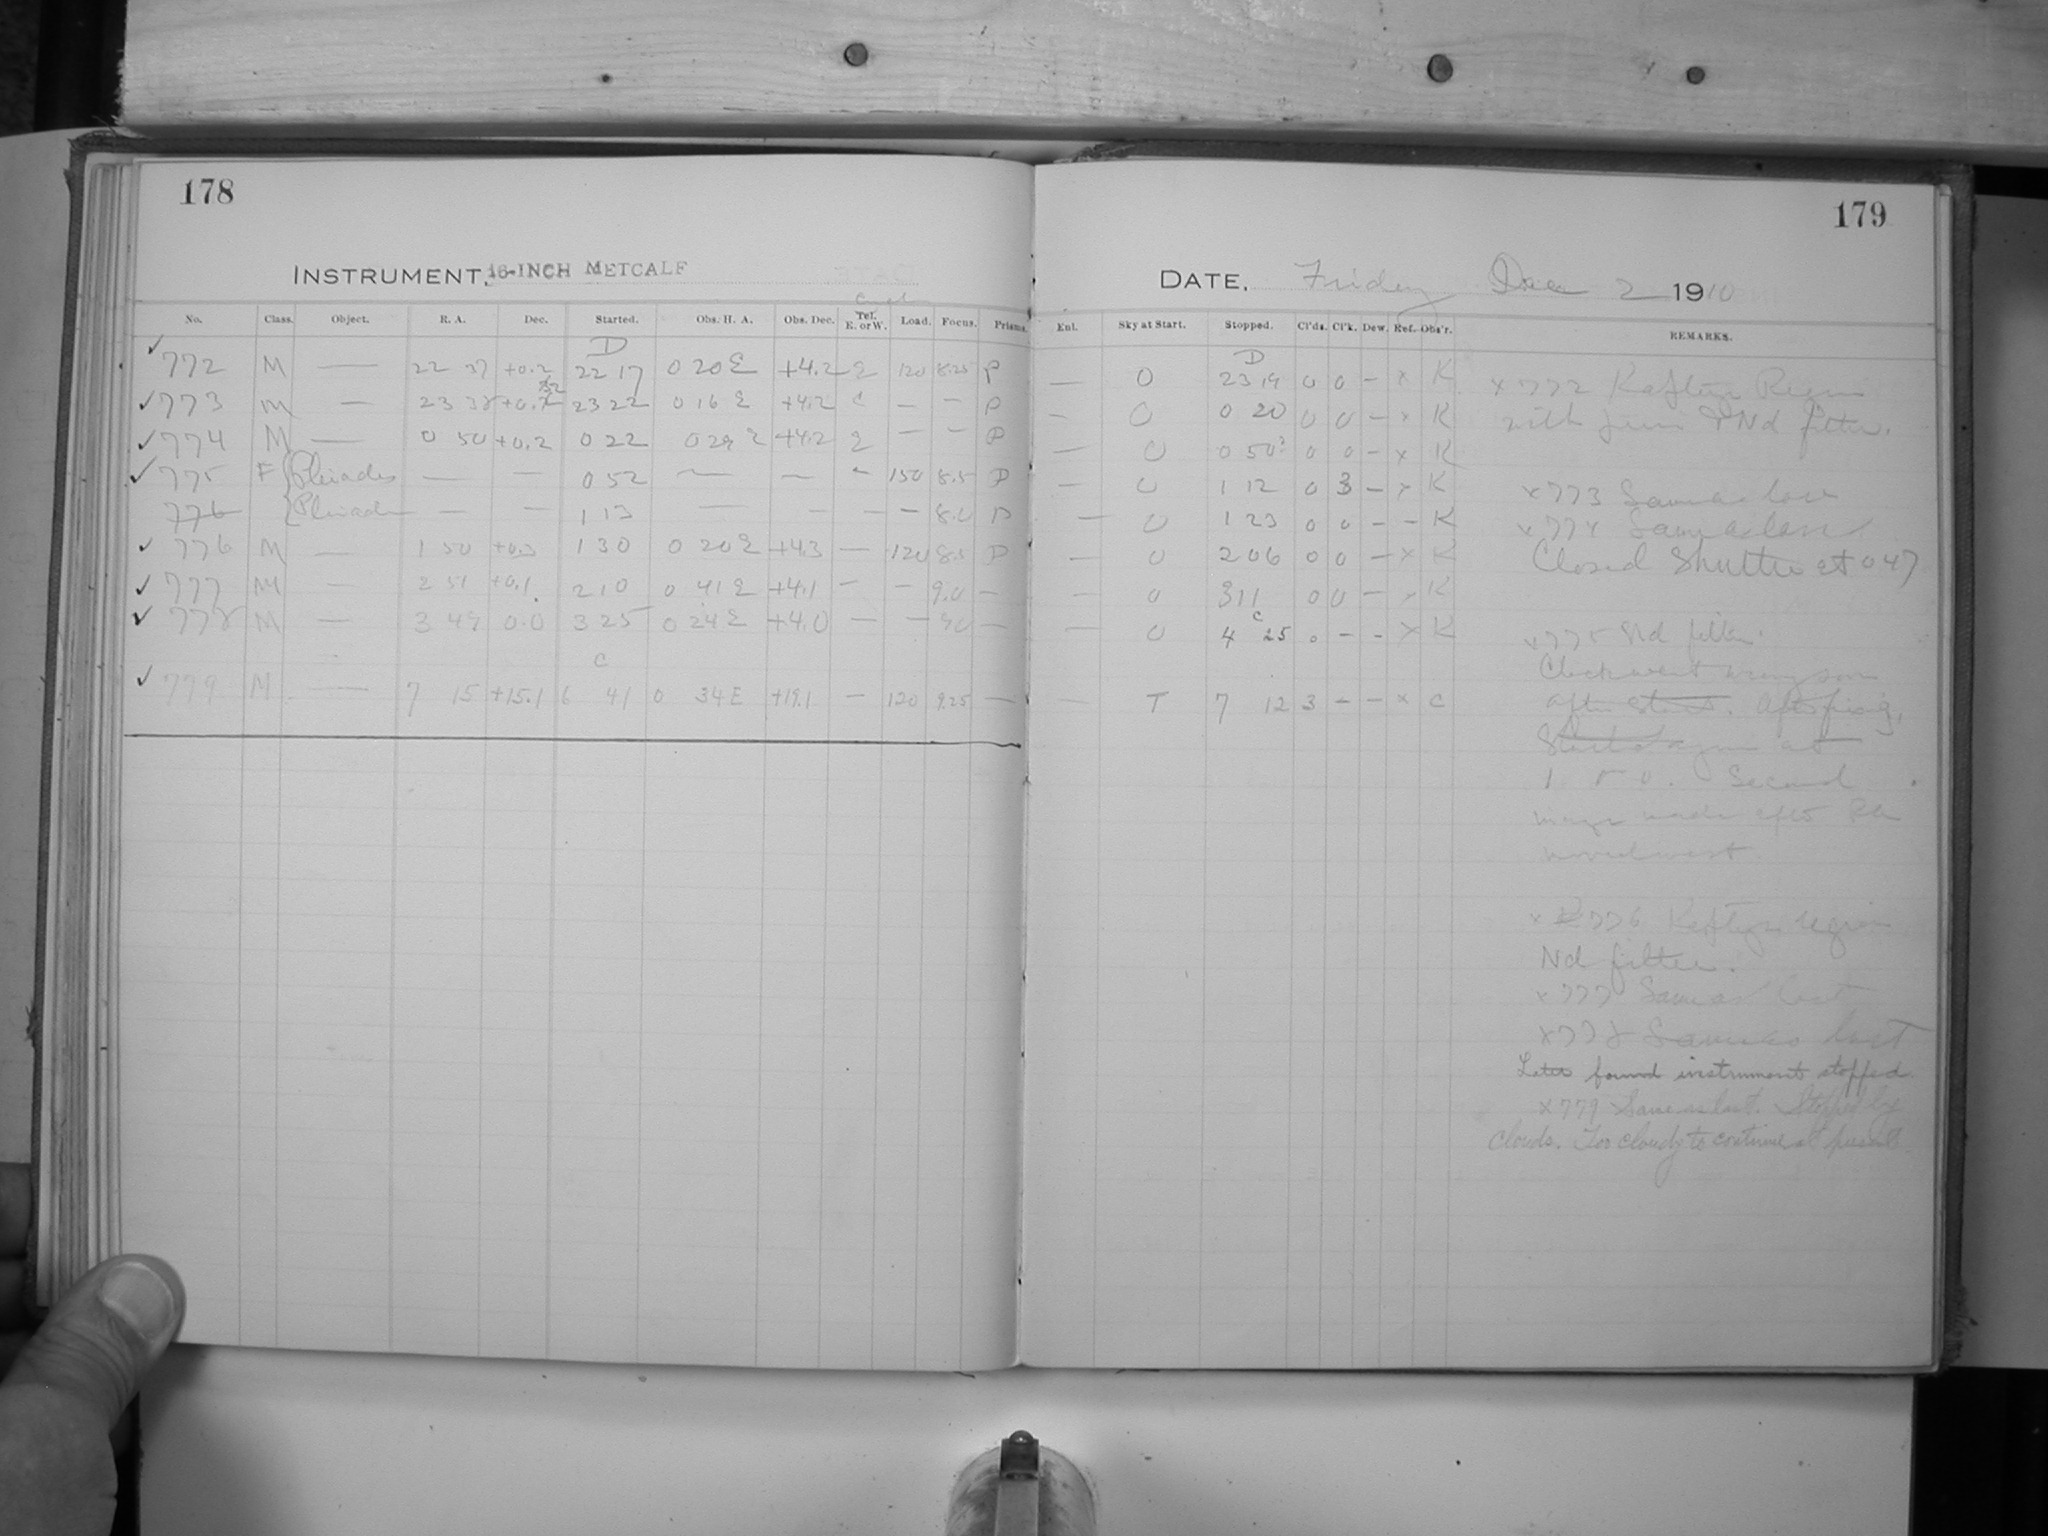 178
INSTRUMENT, 16-INCH METCALF
No. Class. Object. R. A. Dec. Started. Obs. H. A. Obs. Dec. Tel. E. or W. Load. Focus. Prisms.
D
772 M — 22 37 +0.2 22 17 0 20 E +4.2 E 120 8.25 P
773 M — 23 38 23 22 0 16 E +4.2 — — P
774 M — 0 50 +0.2 0 22 0 29 E +4.2 E — — P
775 F Pleiades — — 0 52 — — - 150 8.5 D
776 Pleiades — — 1 13 — — — — 8.0 D
776 M — 1 50 +0.3 1 30 0 20 E +4.3 — 120 8.5 D
777 M — 2 51 +0.1 2 10 0 41 E +4.1 — — 9.0 —
778 M — 3 49 0.0 3 25 0 24 E +4.0 — — 9.0 —
C
779 M — 7 15 +15.1 6 41 0 34 E +19.1 — 120 9.25 —
179
DATE, Friday Dec 2 1910
Enl. Sky at Start. Stopped. Cl'ds. Cl'k. Dew. Ref. Obs'r. REMARKS.
D
— 0 23 19 0 0 — x K
— 0 0 20 0 0 — x K
— 0 0 50? 0 0 - x K
— 0 1 12 0 3 — x K
— 0 1 23 0 0 — — K
— 0 2 06 0 0 — x K
— 0 3 11 0 0 — x K
C
— 0 4 25 0 - - x K
— T 7 12 3 - - x C
x 772 Region
with Nd filter.
x 773 Same as last
x 774 Same as last
Closed Shutter at 0 47
x 775 Nd filter.
Clock went wrong soon
after start. After fixing,
Started again at
1 5 0. Second
image made after
moved west
x 776 region
Nd filter.
x 777 Same as last
x 778 Same as last
Later found instrument stopped.
x 779 Same as last. Stopped by
clouds. Too cloudy to continue at present.